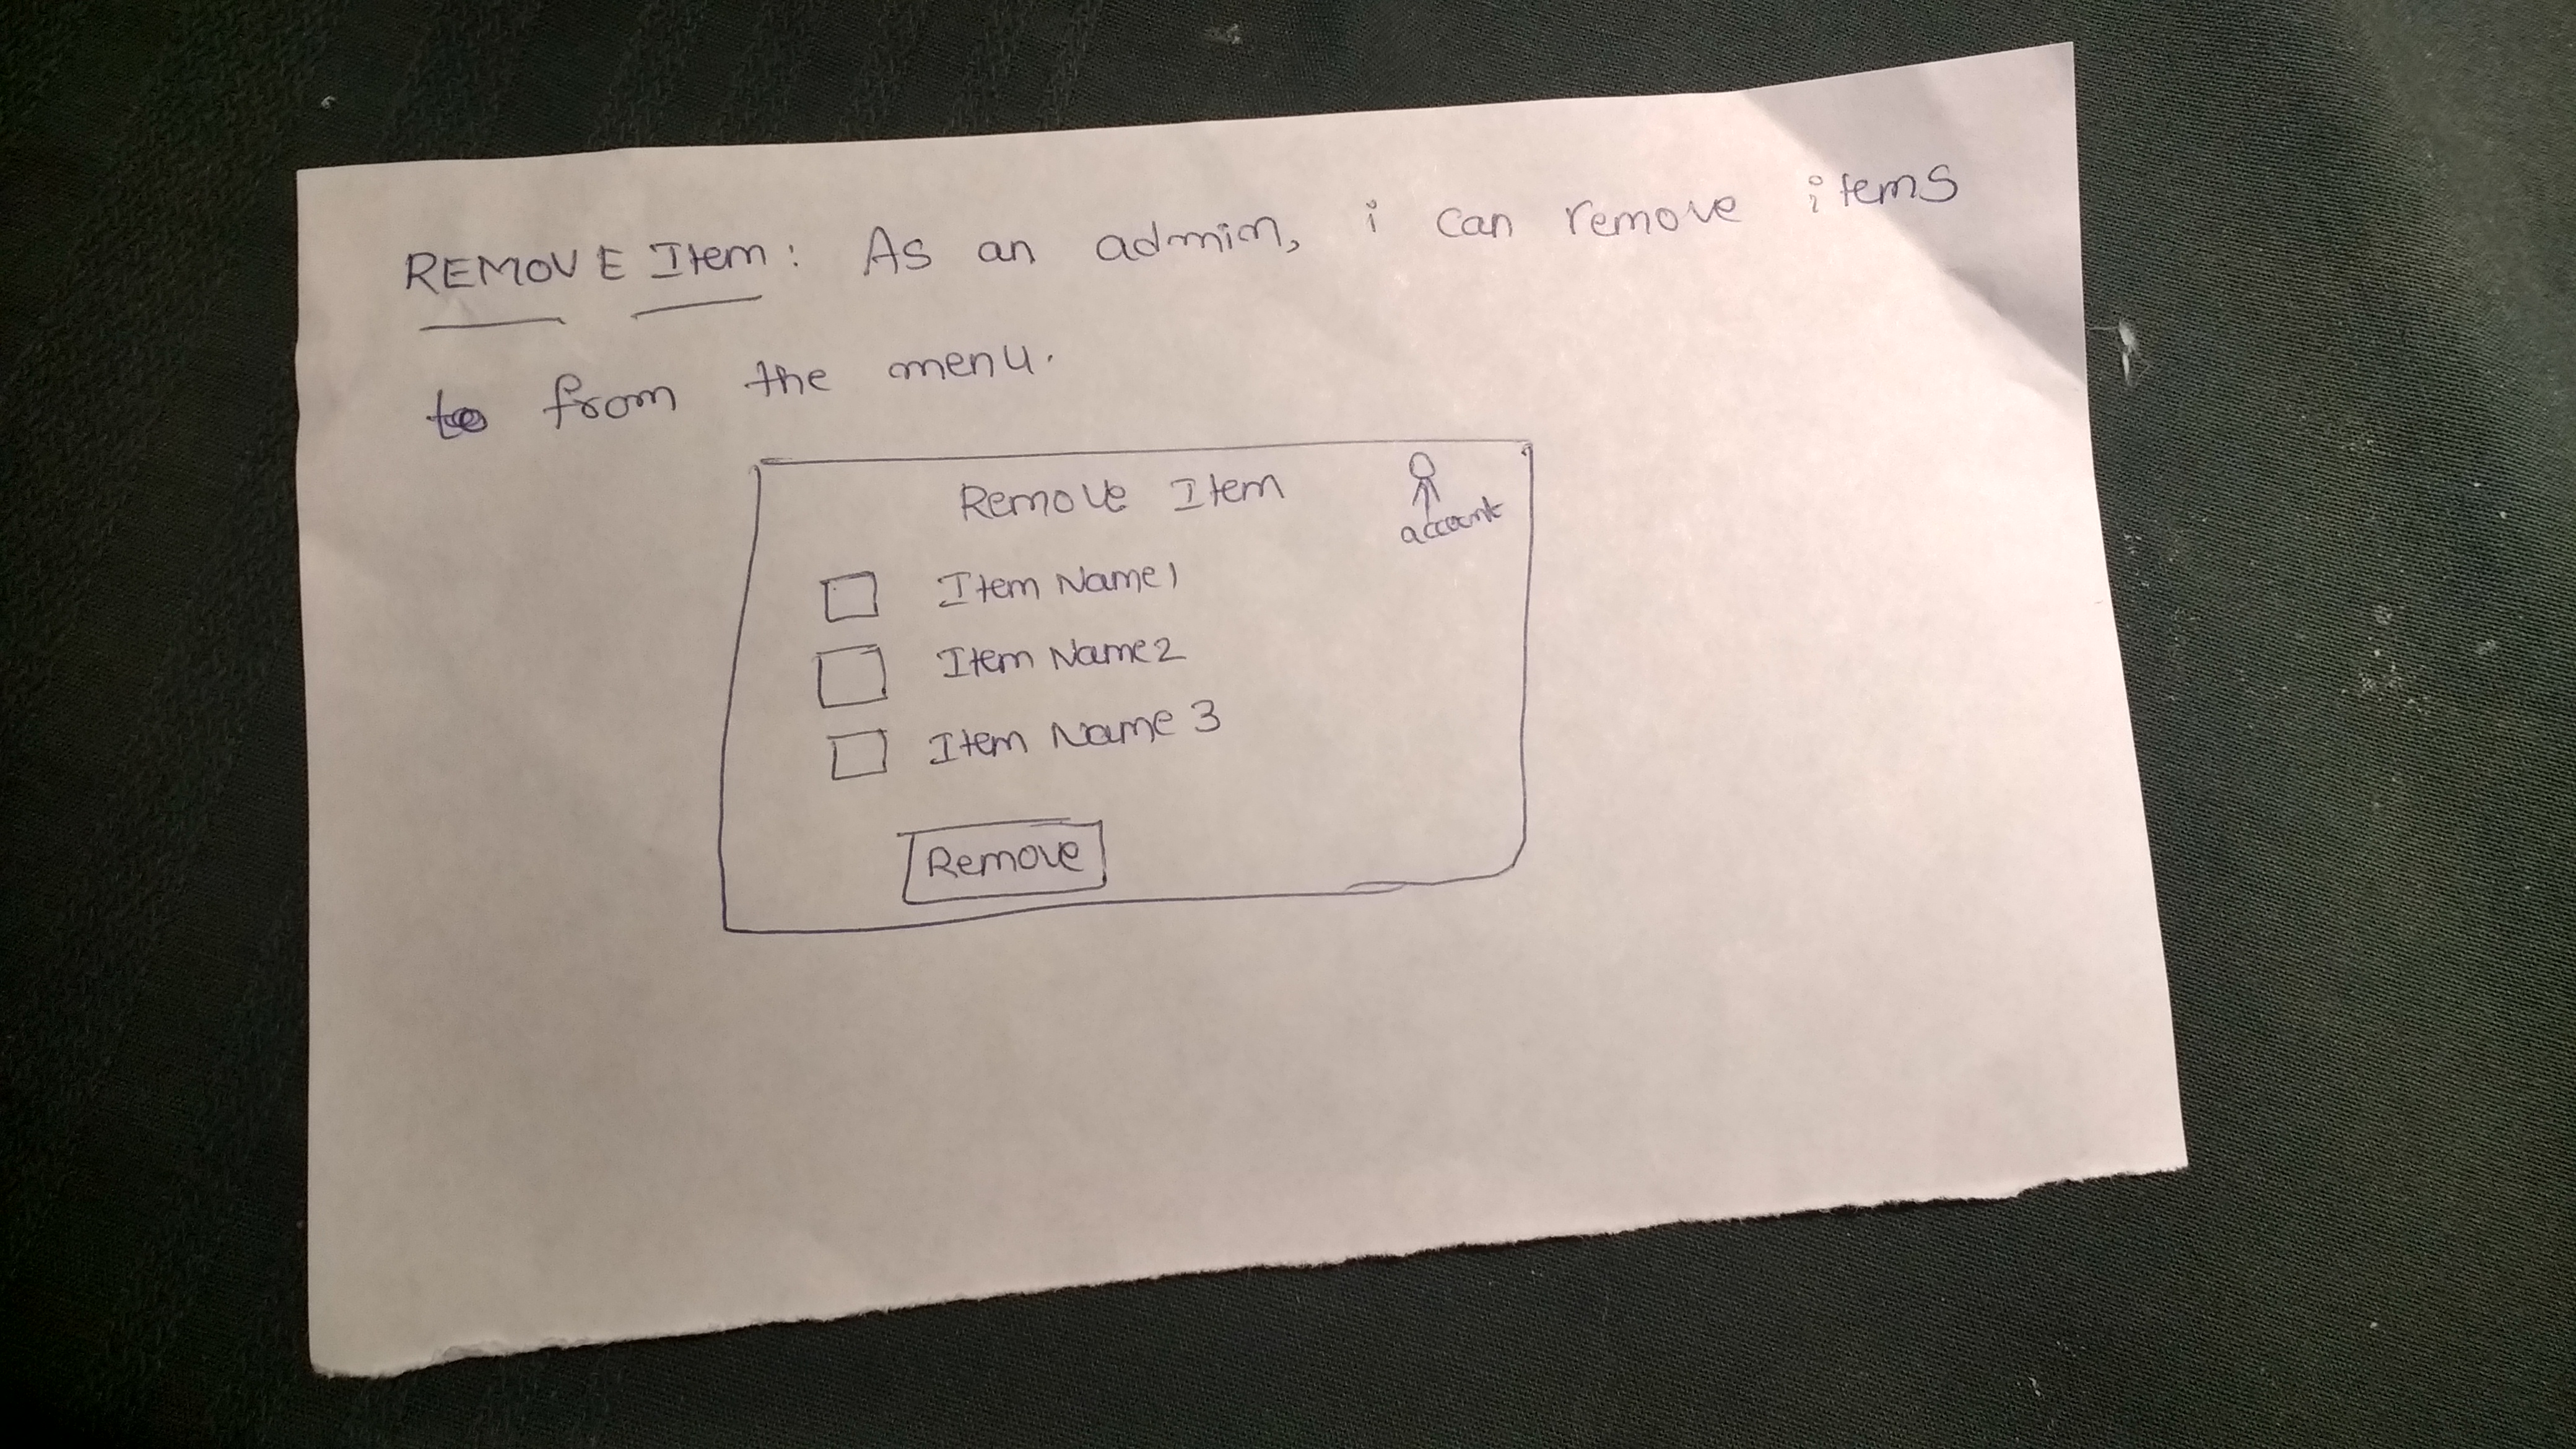 REMOVE Item: As an admin, i can remove items
to from the menu.
Remove Item
account
Item Name1
Item Name2
Item Name 3
Remove